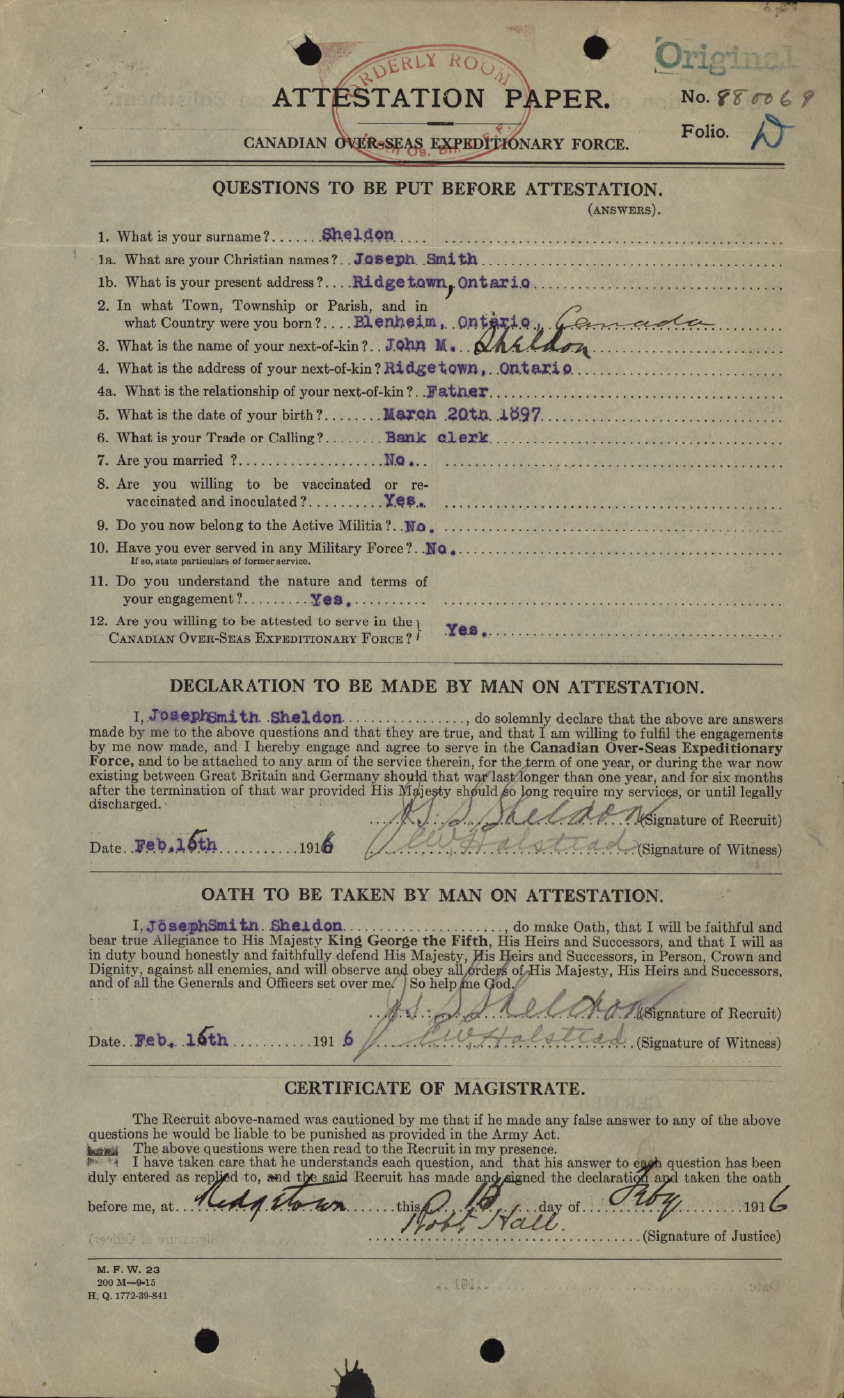 Original
ORDERLY ROOM
ATTESTATION PAPER.
No. 880069
Folio. D
CANADIAN OVER-SEAS EXPEDITIONARY FORCE.
QUESTIONS TO BE PUT BEFORE ATTESTATION.
(ANSWERS).
1. What is your surname?.......Sheldon
1a. What are your Christian names?..Joseph Smith
1b. What is your present address?....Ridgetown, Ontario
2. In what Town, Township or Parish, and in
what Country were you born?....Blenheim, Ontario, Canada
3. What is the name of your next-of-kin?..John M. Sheldon
4. What is the address of your next-of-kin?Ridgetown, Ontario
4a. What is the relationship of your next-of-kin?..Father
5. What is the date of your birth?........March 20th 1897
6. What is your Trade or Calling?........Bank clerk
7. Are you married ?...................No.
8. Are you willing to be vaccinated or re-
vaccinated and inoculated?..........Yes.
9. Do you now belong to the Active Militia?..No.
10. Have you ever served in any Military Force?..No.
If so, state particulars of former service.
11. Do you understand the nature and terms of
your engagement?.........Yes.
12. Are you willing to be attested to serve in the
CANADIAN OVER-SEAS EXPEDITIONARY FORCE? Yes.
DECLARATION TO BE MADE BY MAN ON ATTESTATION.
I, JosephSmith Sheldon................, do solemnly declare that the above are answers
made by me to the above questions and that they are true, and that I am willing to fulfil the engagements
by me now made, and I hereby engage and agree to serve in the Canadian Over-Seas Expeditionary
Force, and to be attached to any arm of the service therein, for the term of one year, or during the war now
existing between Great Britain and Germany should that war last longer than one year, and for six months
after the termination of that war provided His Majesty should so long require my services, or until legally
discharged.
Js. S. Sheldon (Signature of Recruit)
Date..Feb.15th...........1916 CW Halstead (Signature of Witness)
OATH TO BE TAKEN BY MAN ON ATTESTATION.
I, JosephSmith Sheldon......................., do make Oath, that I will be faithful and
bear true Allegiance to His Majesty King George the Fifth, His Heirs and Successors, and that I will as
in duty bound honestly and faithfully defend His Majesty, His Heirs and Successors, in Person, Crown and
Dignity, against all enemies, and will observe and obey all orders of His Majesty, His Heirs and Successors,
and of all the Generals and Officers set over me. So help me God.
Js. S. Sheldon (Signature of Recruit)
Date..Feb. 15th...........1916 CW Halstead (Signature of Witness)
CERTIFICATE OF MAGISTRATE.
The Recruit above-named was cautioned by me that if he made any false answer to any of the above
questions he would be liable to be punished as provided in the Army Act.
The above questions were then read to the Recruit in my presence.
I have taken care that he understands each question, and that his answer to each question has been
duly entered as replied to, and the said Recruit has made and signed the declaration and taken the oath
before me, at Ridgetown this 15 day of Feby 1916
Robt Hall. (Signature of Justice)
M. F. W. 23
200 M—9-15
H. Q. 1772-39-841